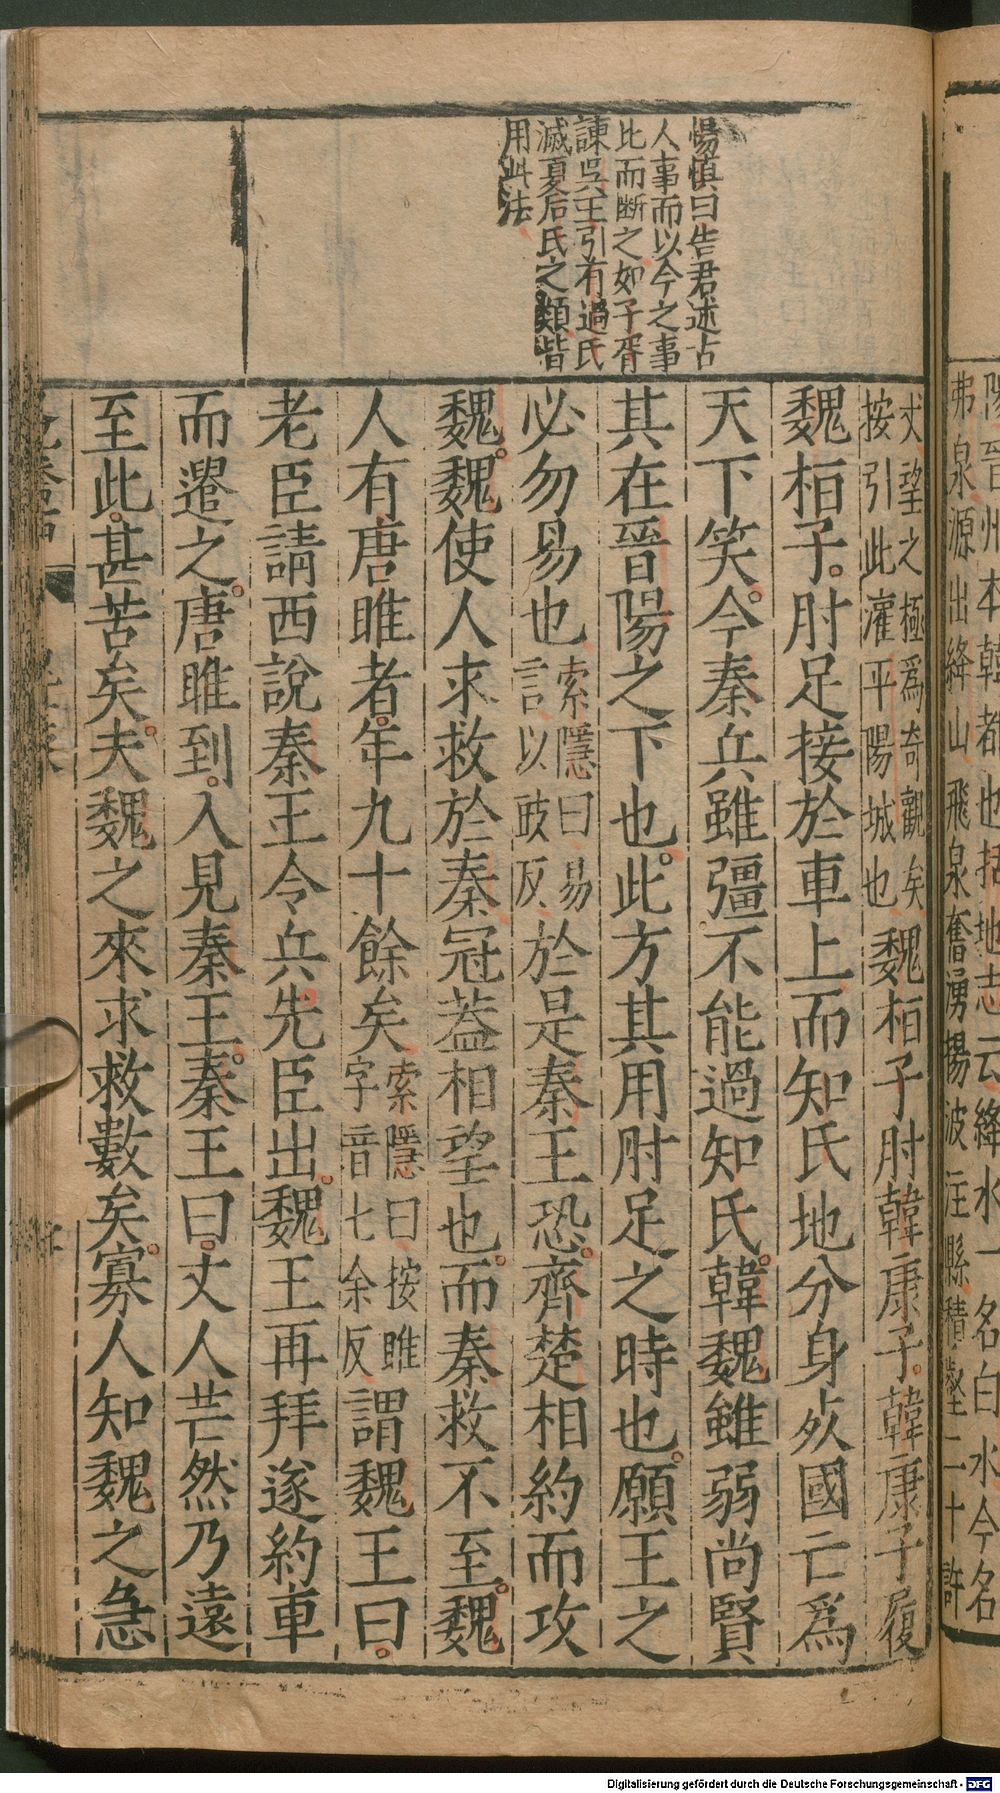 陽晉州本韓都也括地志云絳水一名白水今名
弗泉源出絳山飛泉奮湧揚波注縣積壑二十許
丈望之極爲奇觀矣
按引此灌平陽城也
魏桓子肘韓康子韓康子履
魏桓子肘足接於車上而知氏地分身死國亡爲
天下笑今秦兵雖彊不能過知氏韓魏雖弱尚賢
其在晉陽之下也此方其用肘足之時也願王之
必勿易也
索隱曰易
言以豉反
於是秦王恐齊楚相約而攻
魏魏使人求救於秦冠蓋相望也而秦救不至魏
人有唐雎者年九十餘矣
索隱曰按雎
字音七余反
謂魏王曰
老臣請西說秦王令兵先臣出魏王再拜遂約車
而遣之唐雎到入見秦王秦王曰丈人芒然乃遠
至此甚苦矣夫魏之來求救數矣寡人知魏之急
愼曰告君述古
人事而以今之事
比而断之如子胥
諫吳王引有過氏
滅夏后氏之類皆
用此法
Digitalisierung gefördert durch die Deutsche Forschungsgemeinschaft - DFG